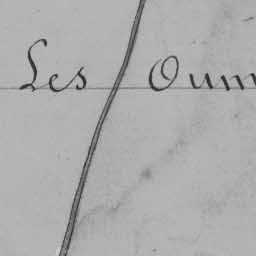 Les Oum